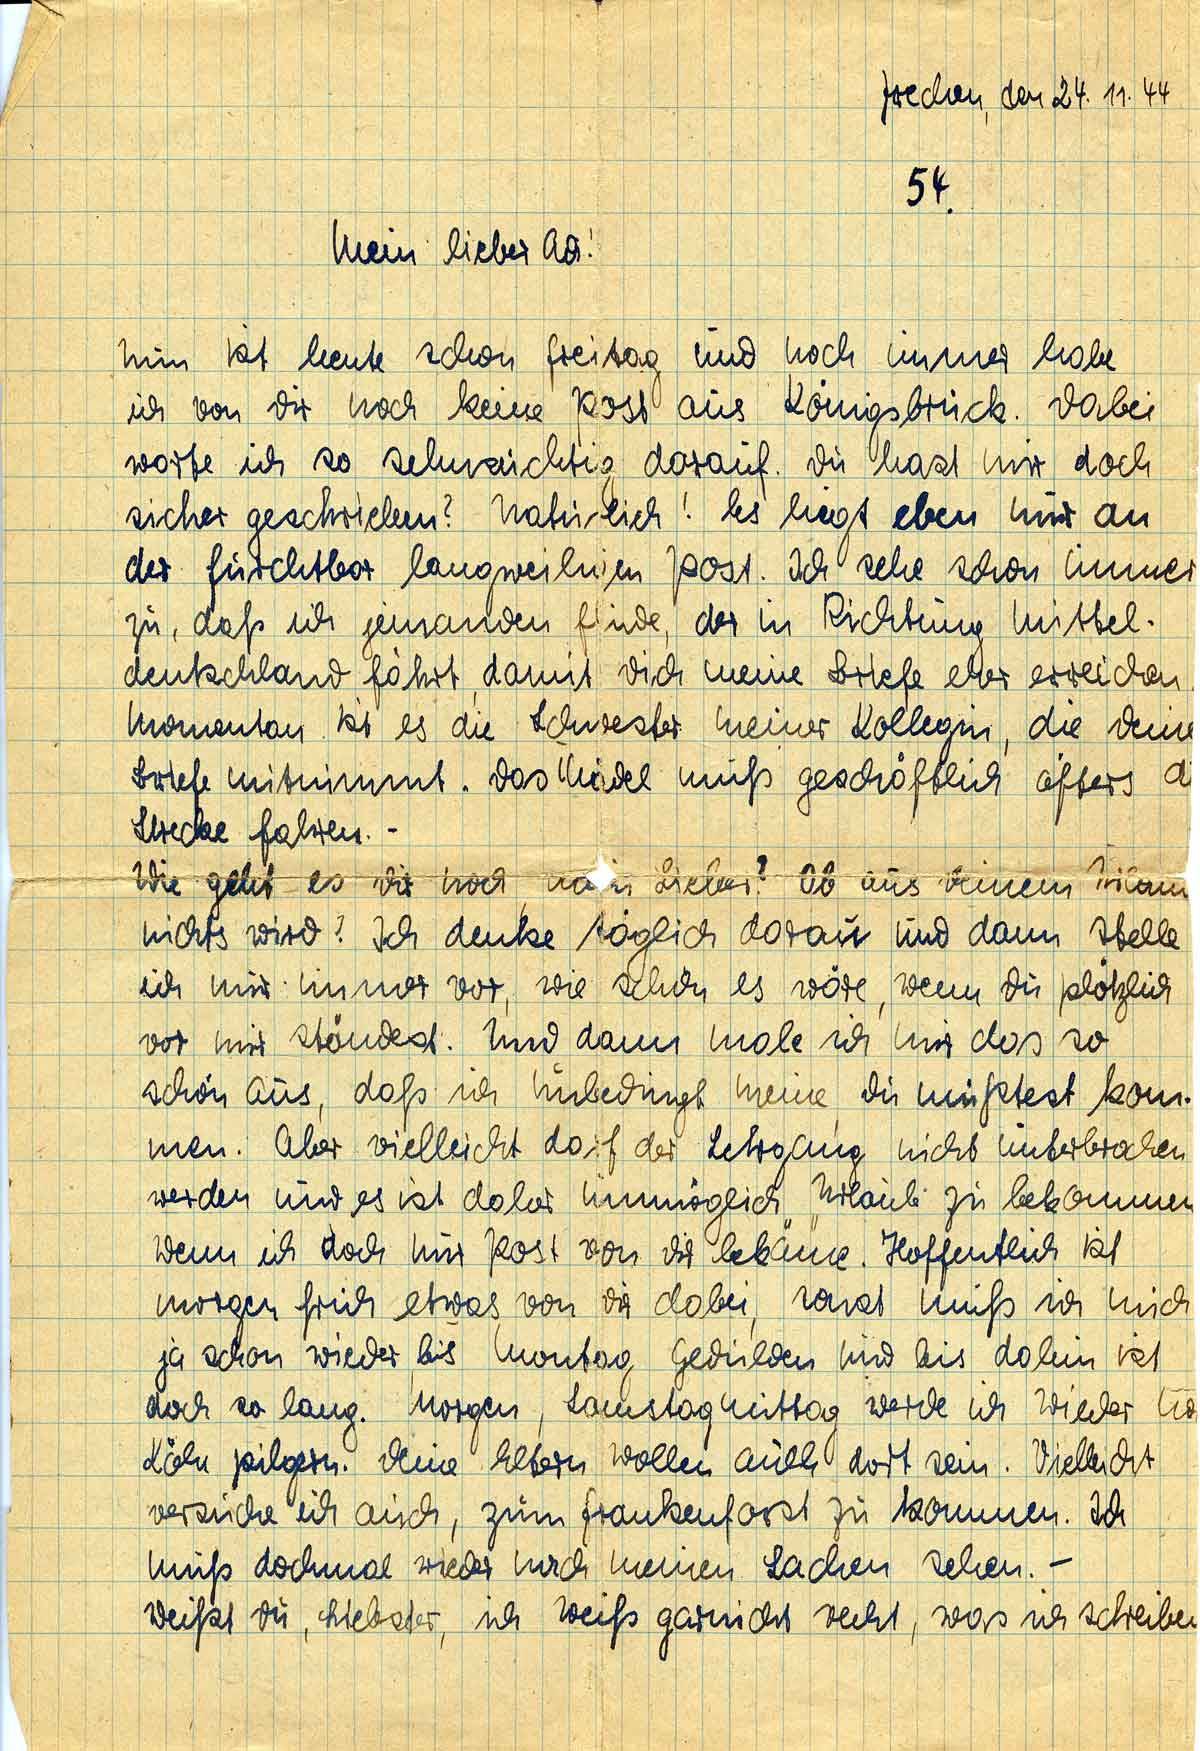 Frechen, den 24. 11. 44
54.
Mein lieber Adi!
Nun ist heute schon Freitag und noch immer habe
ich von Dir noch keine Post aus Königsbrück. Dabei
warte ich so sehnsüchtig darauf. Du hast mir doch
sicher geschrieben? Natürlich! Es liegt eben nur an
der furchtbar langweiligen Post. Ich sehe schon immer
zu, daß ich jemanden finde, der in Richtung Mittel-
deutschland fährt, damit Dich meine Briefe eher erreichen.
Momentan ist es die Schwester meiner Kollegin, die Deine
Briefe mitnimmt. Das Mädel muß geschäftlich öfters di
Strecke fahren. -
Wie geht es Dir noch, mein Lieber? Ob aus Deinem Urlaub
nichts wird? Ich denke täglich daran und dann stelle
ich mir immer vor, wie schön es wäre, wenn Du plötzlich
vor mir ständest. Und dann male ich mir das so
schön aus, daß ich unbedingt meine Du müßtest kom-
men. Aber vielleicht darf der Lehrgang nicht unterbrochen
werden und es ist daher unmöglich Urlaub zu bekommen
Wenn ich doch nur Post von Dir bekäme. Hoffentlich ist
morgen früh etwas von Dir dabei, sonst muß ich mich
ja schon wieder bis Montag gedulden und bis dahin ist
doch so lang. Morgen, Samstagmittag werde ich wieder
Köln pilgern. Deine Eltern wollen auch dort sein. Vielleicht
versuche ich auch, zum Frankenforst zu kommen. Ich
muß dochmal wieder nach meinen Sachen sehen. -
Weißt Du, Liebster, ich weiß garnicht recht, was ich schreiben